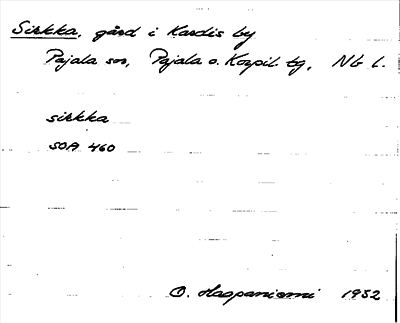 Sirkka, gård i Kardis by
Pajala sn, Pajala o. Korpil. tg, Nb l.
sirkka
SOA 460
O. Haapaniemi 1932